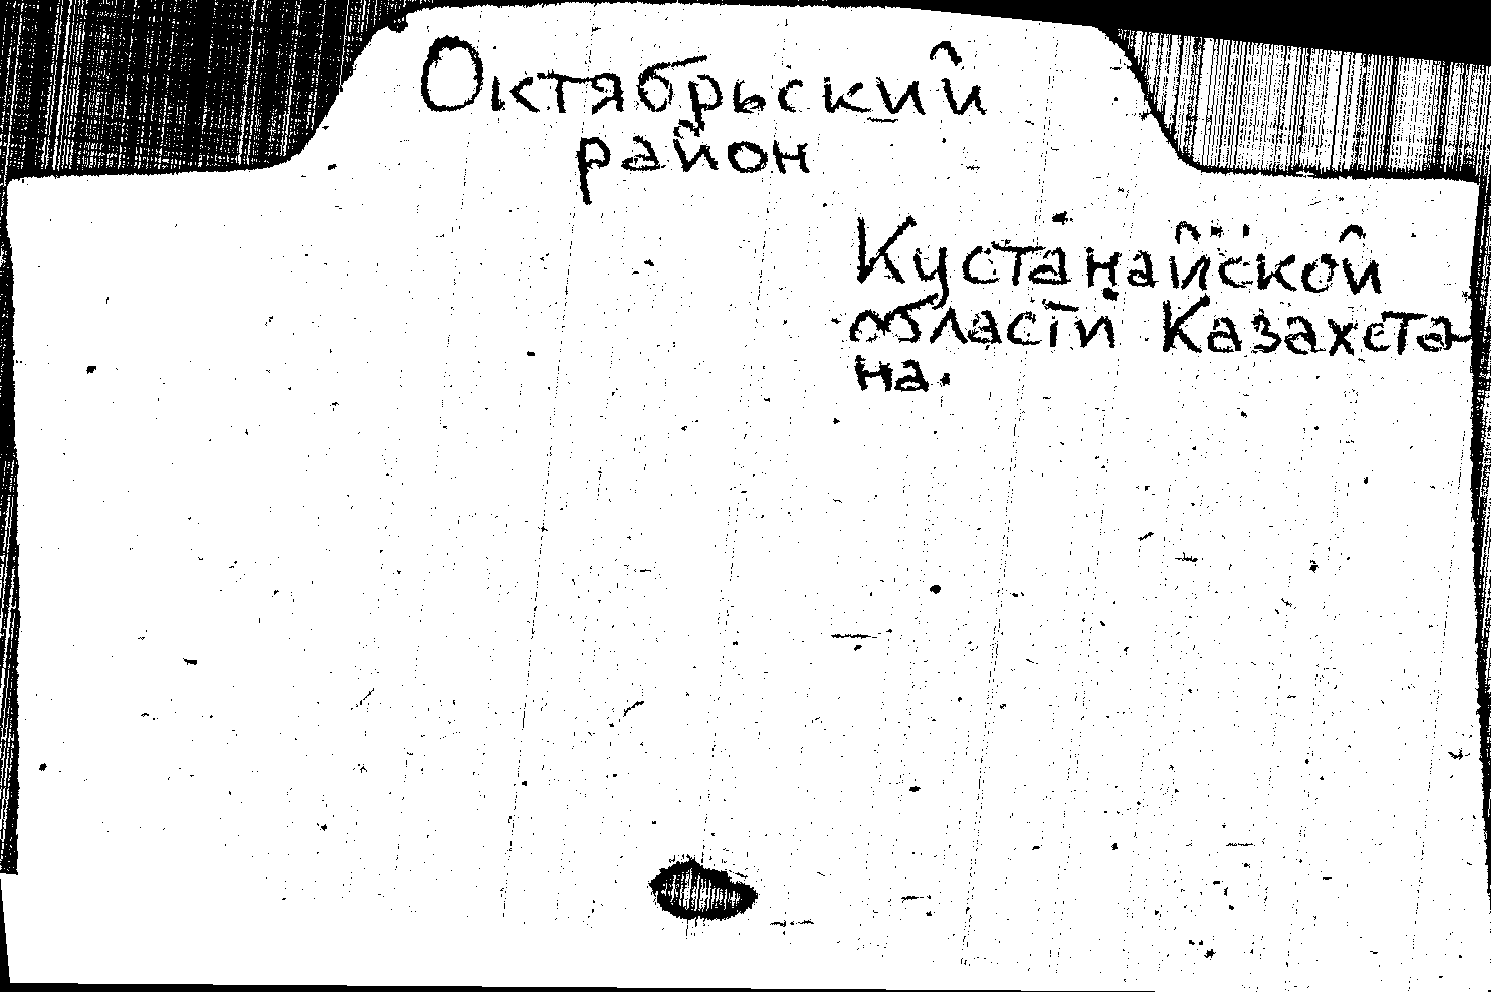 Октябрьский
район
Кустанайской
области Казахста-
на.